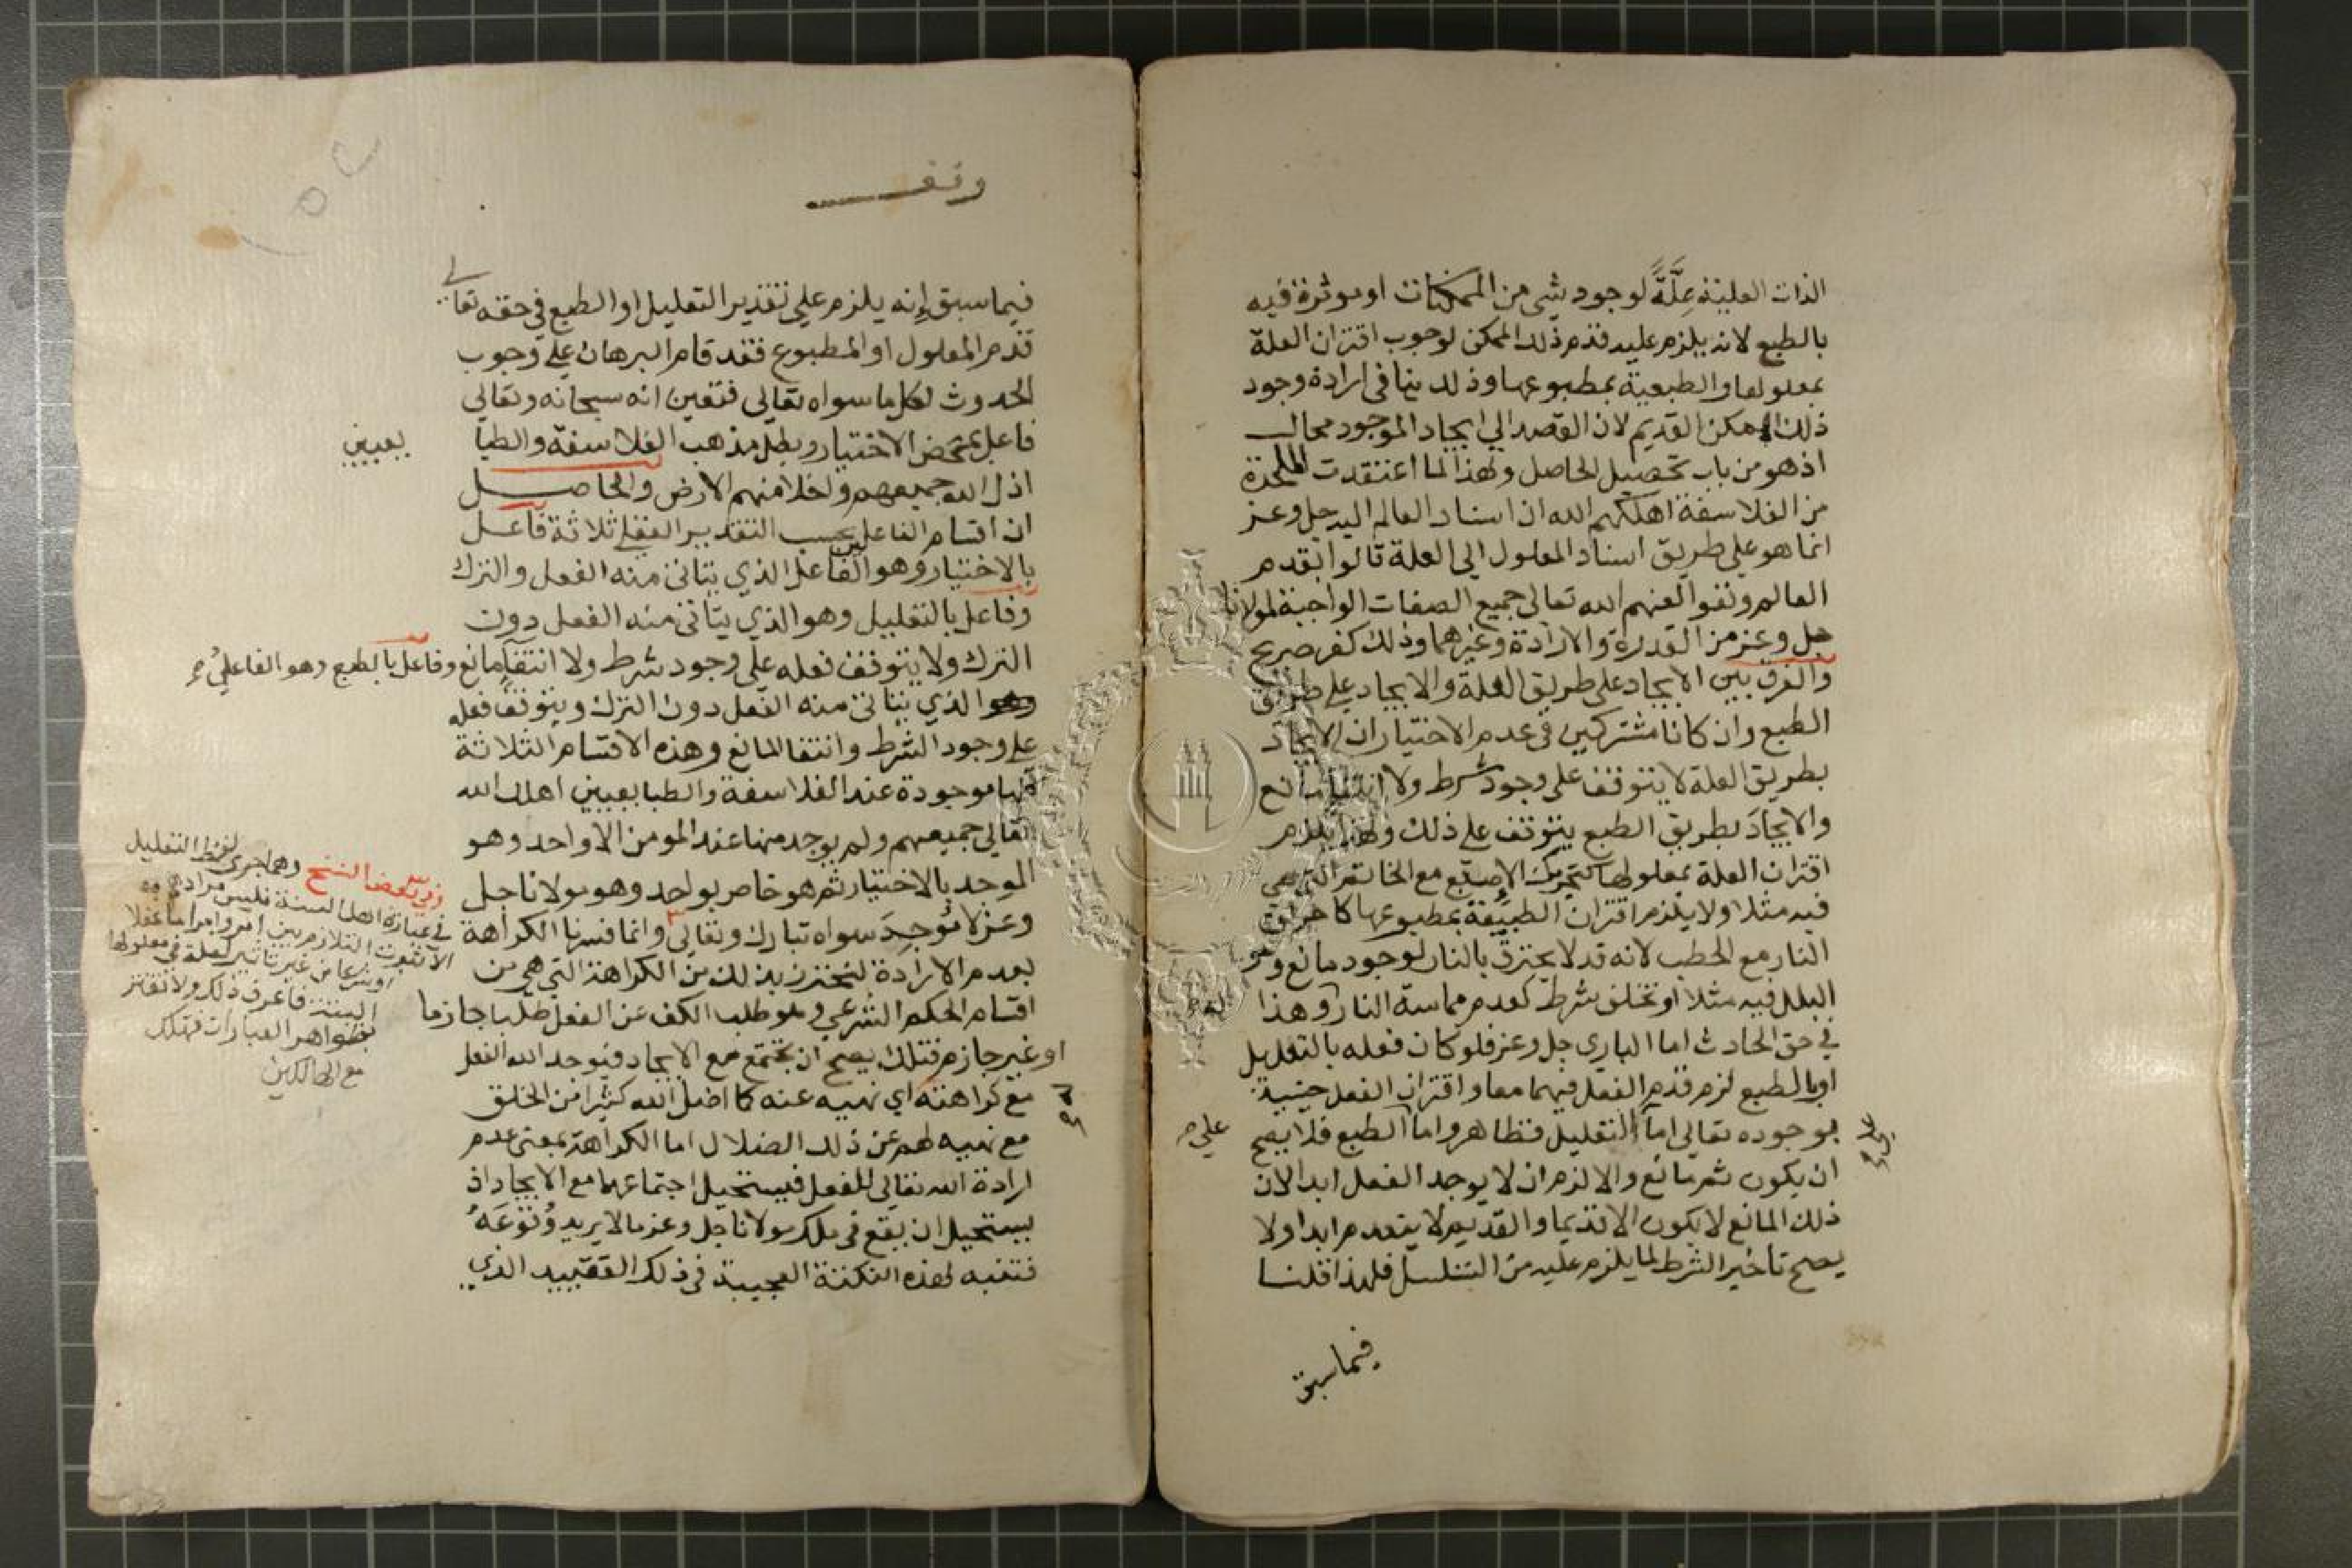 الذات العلية عِلَّةً لوجود شي من الممكنات او موثرة فيه
بالطبع لانه يلزم عليه قدم ذلك الممكن لوجوب اقتران العلة
بمعلولها والطبعية بمطبوعها وذلك ينافي ارادة وجود
ذلك الممكن القديم لان القصد الي ايجاد الموجود محال
اذ هو من باب تحصيل الحاصل ولهذا لما اعتقدت الملحدة
من الفلاسفة اهلكهم الله ان اسناد العالم اليه جل وعز
انما هو علي طريق اسناد المعلول الي العلة قالوا بقدم
العالم ونفوا لعنهم الله تعالى جميع الصفات الواجبة لمولانا
جل وعز من القدرة والارادة وغيرهما وذلك كفر صريح
والفرق بين الايجاد على طريق العلة والايجاد علي طريق
الطبع وان كانا مشتركين في عدم الاختيار ان الايجاد
بطريق العلة لا يتوقف على وجود شرط ولا انتفا مانع
والايجاد بطريق الطبع يتوقف على ذلك ولهذا يلزم
اقتران العلة بمعلولها كتحريك الاصبع مع الخاتم التي هي
فيه مثلا ولا يلزم اقتران الطبيعة بمطبوعها كاحراق
النار مع الحطب لانه قد لا يحترق بالنار لوجود مانع وهو
البلل فيه مثلا او تخلف شرط كعدم مماسة النار له وهذا
في حق الحادث اما الباري جل وعز فلو كان فعله بالتعليل
او بالطبع لزم قدم الفعل فيهما معا واقتران الفعل حينيذ
بوجوده تعالي اما التعليل فظاهر واما الطبع فلا يصح
علي
ان يكون ثم مانع والا لزم ان لا يوجد الفعل ابدا لان
ذلك المانع لا يكون الا قديما والقديم لا ينعدم ابدا ولا
يصح تاخير الشرط لما يلزم عليه من التسلسل فلهذا قلنا
فيما سبق
وقف
فيما سبق إنه يلزم علي تقدير التعليل او الطبع في حقه تعالي
قدم المعلول او المطبوع فقد قام البرهان على وجوب
الحدوث لكل ما سواه تعالى فتعين انه سبحانه وتعالي
فاعل بمحض الاختيار وبطل مذهب الفلاسفة والطبا
يعيين
اذل الله جميعهم واخلا منهم الارض والحاصل
ان اقسام الفاعل بحسب التقدير العقلي ثلاثة فاعل
بالاختيار وهو الفاعل الذي يتاتى منه الفعل والترك
وفاعل بالتعليل وهو الذي يتاتى منه الفعل دون
الترك ولا يتوقف فعله على وجود شرط ولا انتفا مانع وفاعل بالطبع وهو الفاعل
الذي يتاتى منه الفعل دون الترك ويتوقف فعله
على وجود الشرط وانتفا المانع وهذه الاقسام الثلاثة
كلها موجودة عند الفلاسفة والطبايعيين اهلك الله
تعالي جميعهم ولم يوجد منها عند المومن الا واحد وهو
الموجد بالاختيار ثم هو خاص بواحد وهو مولانا جل
وعز لا مُوجِدَ سواه تبارك وتعالي وانما فسرنا الكراهة
بعدم الارادة لنحترز بذلك من الكراهة التي هي من
اقسام الحكم الشرعي وهو طلب الكف عن الفعل طلبا جازما
او غير جازم فتلك يصح ان تجتمع مع الايجاد فيوجد الله الفعل
مع كراهته اي نهيه عنه كما اضل الله كثيرا من الخلق
مع نهيه لهم عن ذلك الضلال اما الكراهة بمعنى عدم
ارادة الله تعالي للفعل فيستحيل اجتماعها مع الايجاد اذ
يستحيل ان يقع في ملك مولانا جل وعز ما لا يريد وُقوعَهُ
فتنبه لهذه النكتة العجيبة في ذلك التقييد الذي
وفي بعض النسخ وهما جرى لفظ التعليل
في عبارة اهل السنة فليس مرادهم به
الا ثبوت التلازم بين امر وامر اما عقلا
او شرعا من غير تاثير لعلة في معلولها
البتة فاعرف ذلك ولا تغتر
بظواهر العبارات فتهلك
مع الهالكين